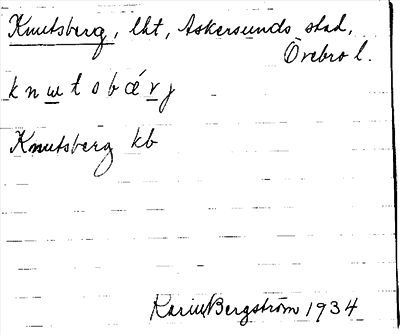 Knutsberg, lht, Askersunds stad,
Örebro l.
k n u t s b ǽ r j
Knutsberg kb
Karin Bergström 1934